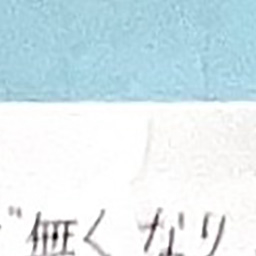 無くなり